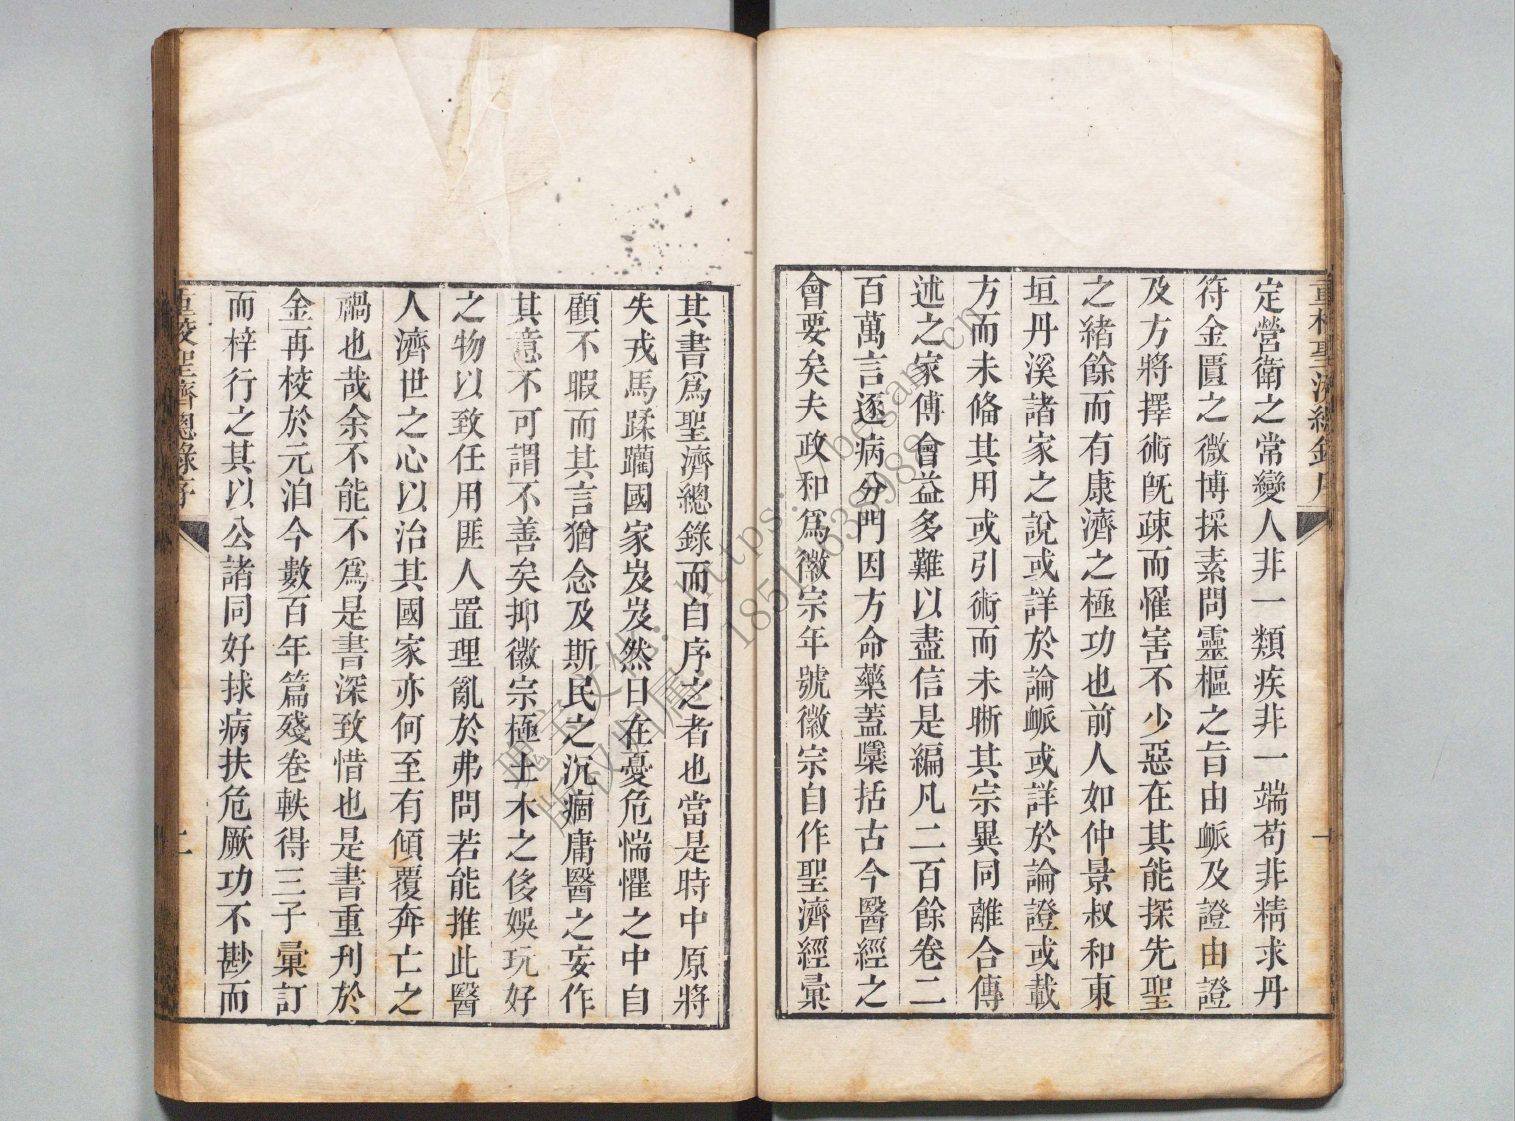 定營衛之常變人非一類疾非一端苟非精求丹
符金匱之微博採素問靈樞之旨由衇及證由證
及方將擇術旣疎而罹害不少惡在其能探先聖
之緒餘而有康濟之極功也前人如仲景叔和東
垣丹溪諸家之說或詳於論衇或詳於論證或載
方而未偹其用或引術而未晰其宗異同離合傳
述之家傅會益多難以盡信是編凡二百餘卷二
百萬言逐病分門因方命藥蓋檃括古今醫經之
會要矣夫政和爲徽宗年號徽宗自作聖濟經彙
其書爲聖濟總錄而自序之者也當是時中原將
失戎馬蹂躪國家岌岌然日在憂危惴懼之中自
顧不暇而其言猶念及斯民之沉痼庸醫之妄作
其意不可謂不善矣抑徽宗極土木之侈娛玩好
之物以致任用匪人置理亂於弗問若能推此醫
人濟世之心以治其國家亦何至有傾覆奔亡之
禍也哉余不能不爲是書深致惜也是書重刊於
金再校於元洎今數百年篇殘卷軼得三子彙訂
而梓行之其以公諸同好捄病扶危厥功不尠而
重校聖濟總錄序
https://began.cn